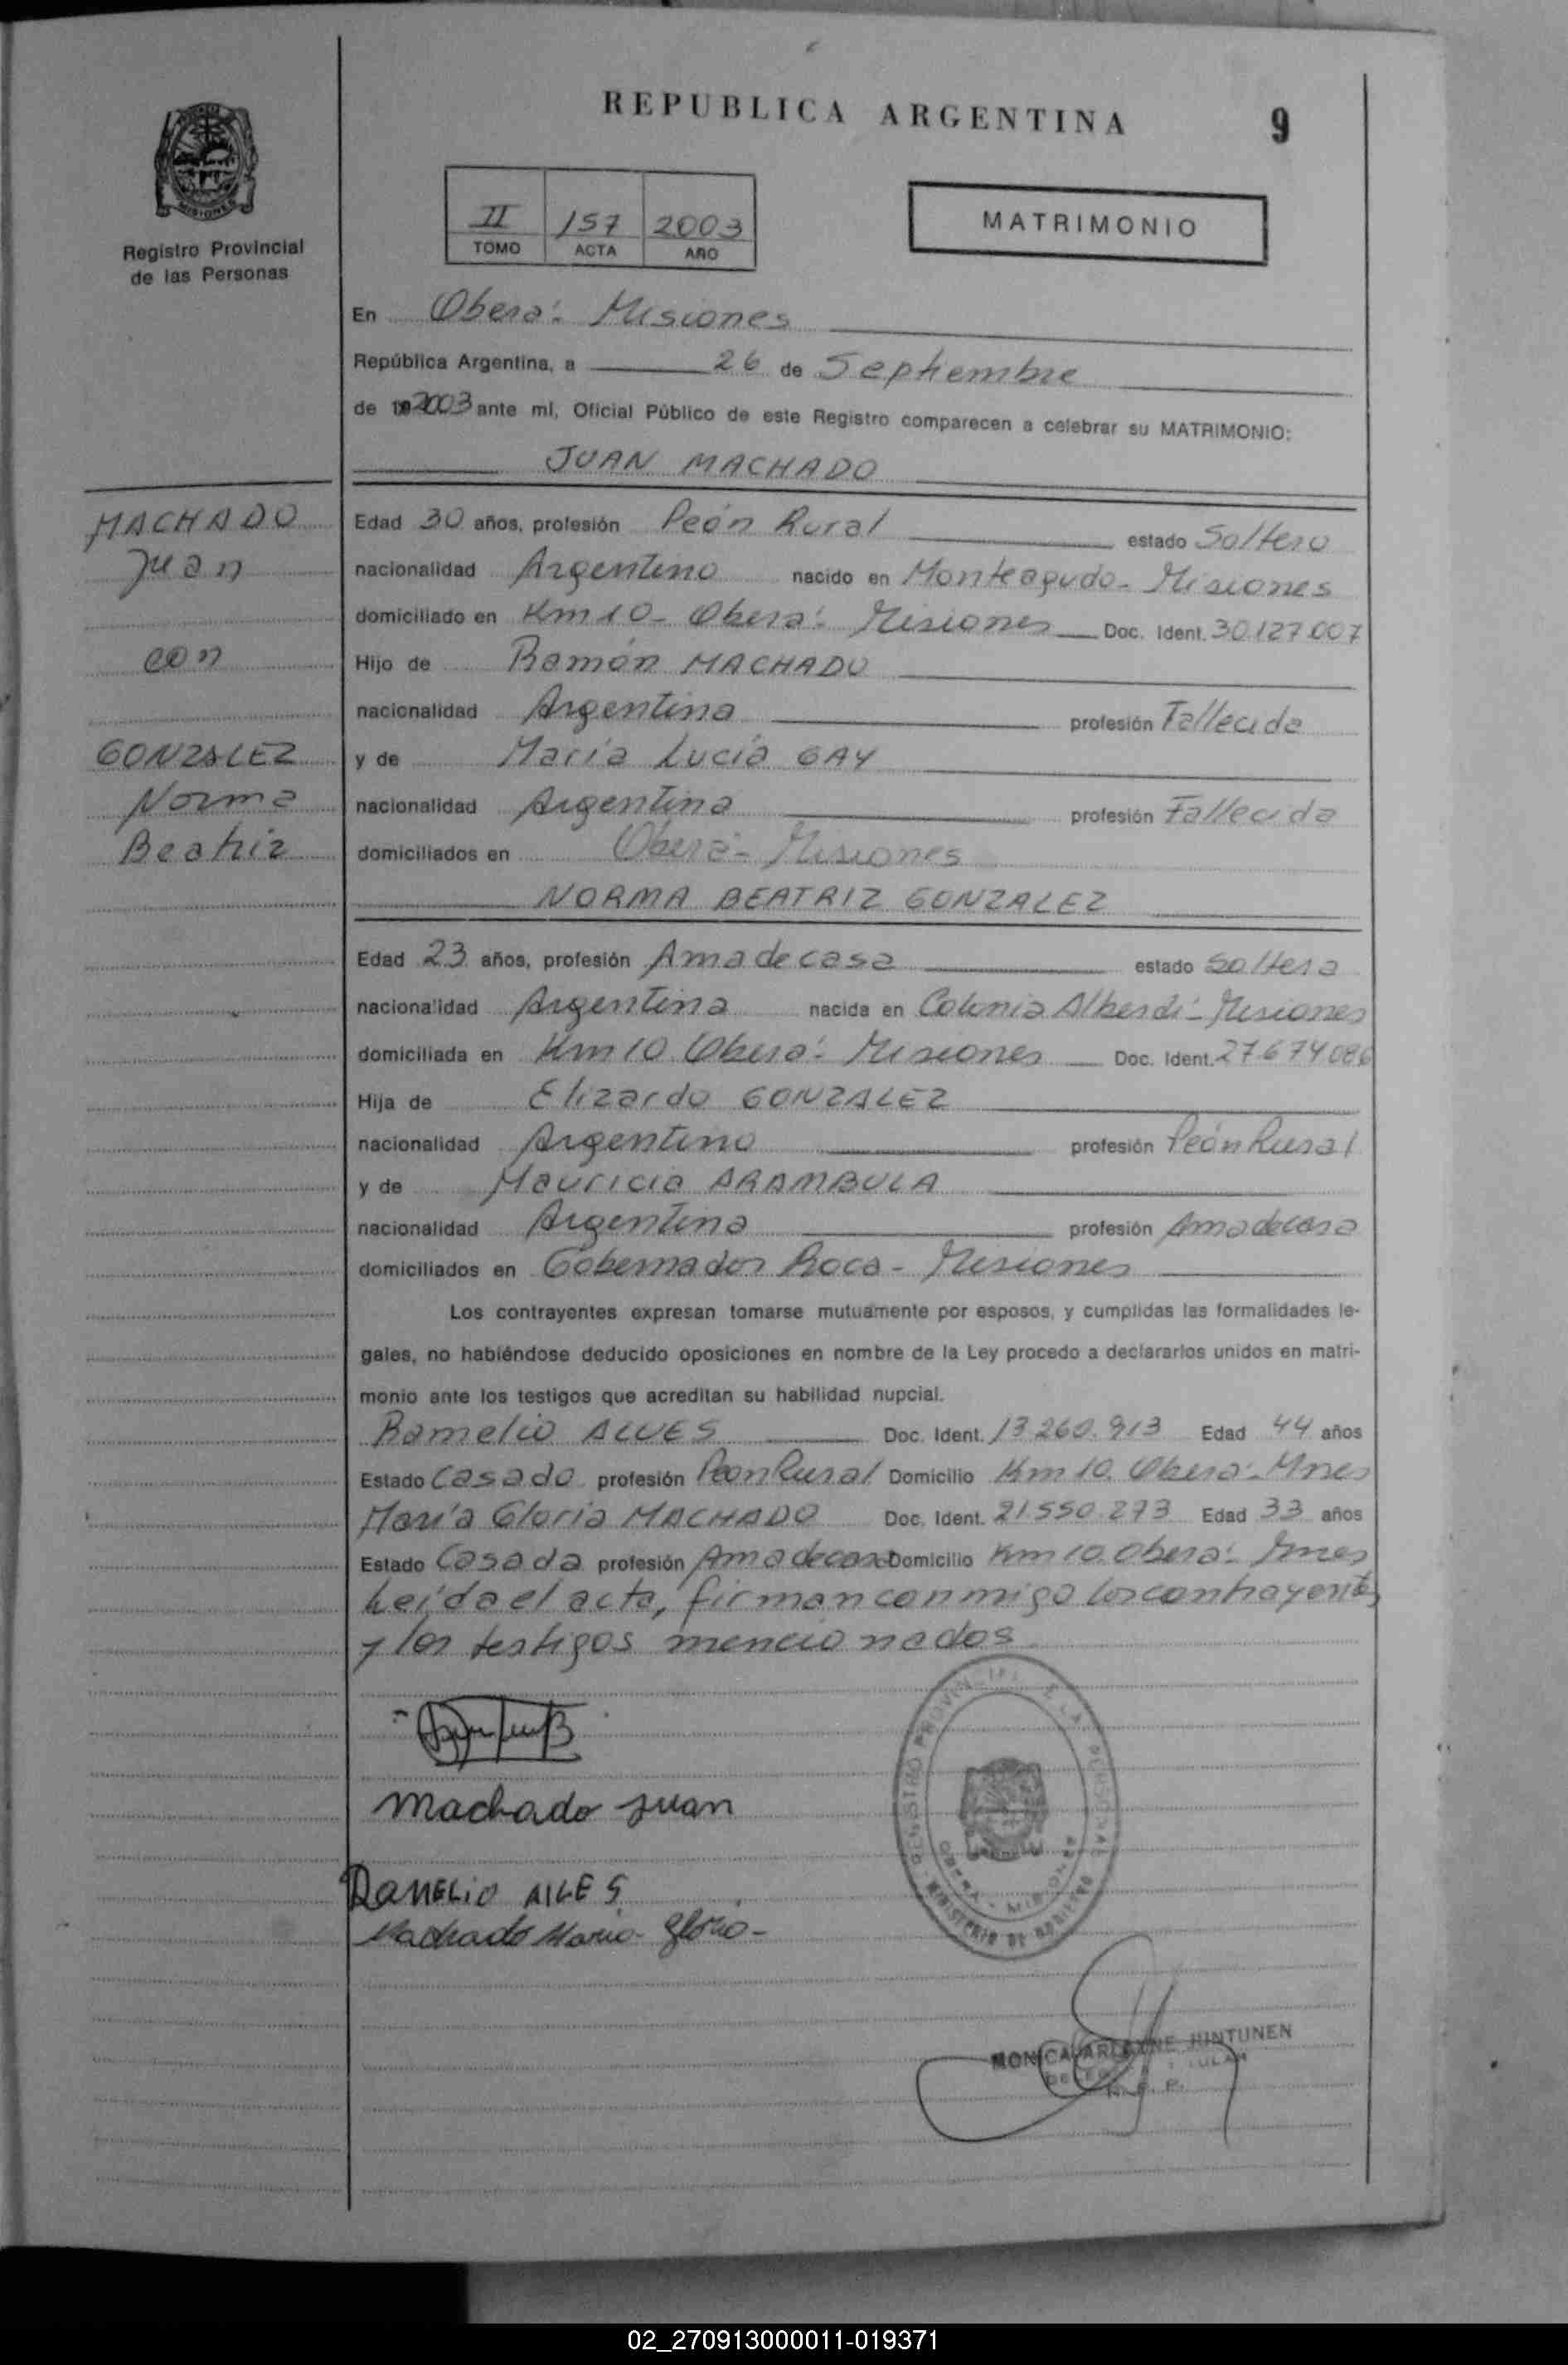 REPUBLICA ARGENTINA
9
MISIONES
Registro Provincial
de las Personas
II 157 2003
TOMO ACTA AÑO
MATRIMONIO
En Oberá- Misiones
República Argentina, a 26 de Septiembre
de 2003 ante mí, Oficial Público de este Registro comparecen a celebrar su MATRIMONIO:
JUAN MACHADO
MACHADO
Juan
con
GONZALEZ
Norma
Beatriz
Edad 30 años, profesión Peón Rural estado Soltero
nacionalidad Argentino nacido en Monteagudo- Misiones
domiciliado en Km 10- Oberá- Misiones Doc. Ident. 30.127.007
Hijo de Ramón MACHADO
nacionalidad Argentina profesión Fallecido
y de María Lucía GAY
nacionalidad Argentina profesión Fallecida
domiciliados en Oberá- Misiones
NORMA BEATRIZ GONZALEZ
Edad 23 años, profesión Ama de casa estado Soltera
nacionalidad Argentina nacida en Colonia Alberdi- Misiones
domiciliada en Km 10 Oberá- Misiones Doc. Ident. 27.674.086
Hija de Elizardo GONZALEZ
nacionalidad Argentino profesión Peón Rural
y de Mauricia ARAMBULA
nacionalidad Argentina profesión Ama de casa
domiciliados en Gobernador Roca- Misiones
Los contrayentes expresan tomarse mutuamente por esposos, y cumplidas las formalidades le-
gales, no habiéndose deducido oposiciones en nombre de la Ley procedo a declararlos unidos en matri-
monio ante los testigos que acreditan su habilidad nupcial.
Ramelio ALVES Doc. Ident. 13.260.913 Edad 44 años
Estado Casado profesión Peon Rural Domicilio Km 10. Oberá- Mnes
María Gloria MACHADO Doc. Ident. 21.550.273 Edad 33 años
Estado Casada profesión Ama de casa Domicilio Km 10. Oberá- Mnes
Leída el acta, firman conmigo los contrayentes
y los testigos mencionados
machado juan
RAMELIO AlLES
Machado Maria Gloria-
REGISTRO PROVINCIAL DE LAS PERSONAS
OBERA - MISIONES
MINISTERIO DE GOBIERNO
MONICA ARLEYNE HINTUNEN
R. P. P.
02_270913000011-019371